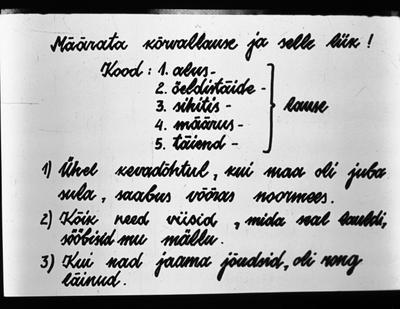 Määrata kõrvallause ja selle liik!
Kood: 1. alus-
2. öeldistäide-
3. sihitis-
4. määrus-
5. täiend-
lause
1) Ühel kevadõhtul, kui maa oli juba
sula, saabus võõras noormees.
2) Kõik need viisid, mida seal lauldi,
sööbisid mu mällu.
3) Kui nad jaama jõudsid, oli rong
läinud.